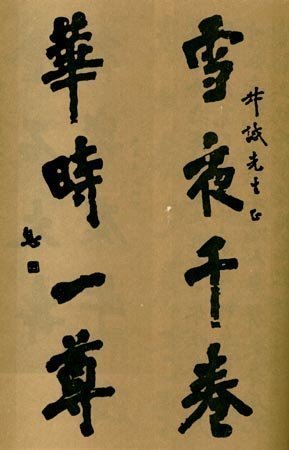 叔誠先生正
雪夜千卷
華時一尊